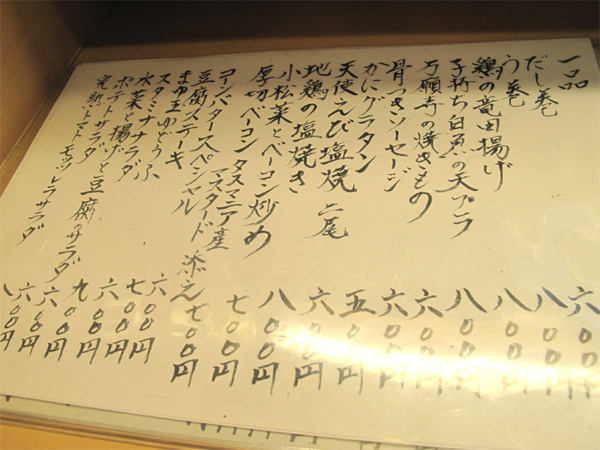 一品
だし巻 六〇〇円
う巻 八〇〇円
鶏の竜田揚げ 八〇〇円
子持ち白魚の天プラ 八〇〇円
万願寺の焼きもの 六〇〇円
骨つきソーセージ 六〇〇円
かにグラタン 五〇〇円
天使えび塩焼 二尾 六〇〇円
地鶏の塩焼き 八〇〇円
小松菜とベーコン炒め 七〇〇円
厚切ベーコン タスマニア産マスタード添え 七〇〇円
コーンバタースペシャル 六〇〇円
豆腐ステーキ 七〇〇円
まゆ玉ゆどうふ 六〇〇円
スタミナサラダ 九〇〇円
水菜と揚げと豆腐のサラダ 六〇〇円
ポテトサラダ 六〇〇円
完熟トマトモッツレラサラダ 八〇〇円